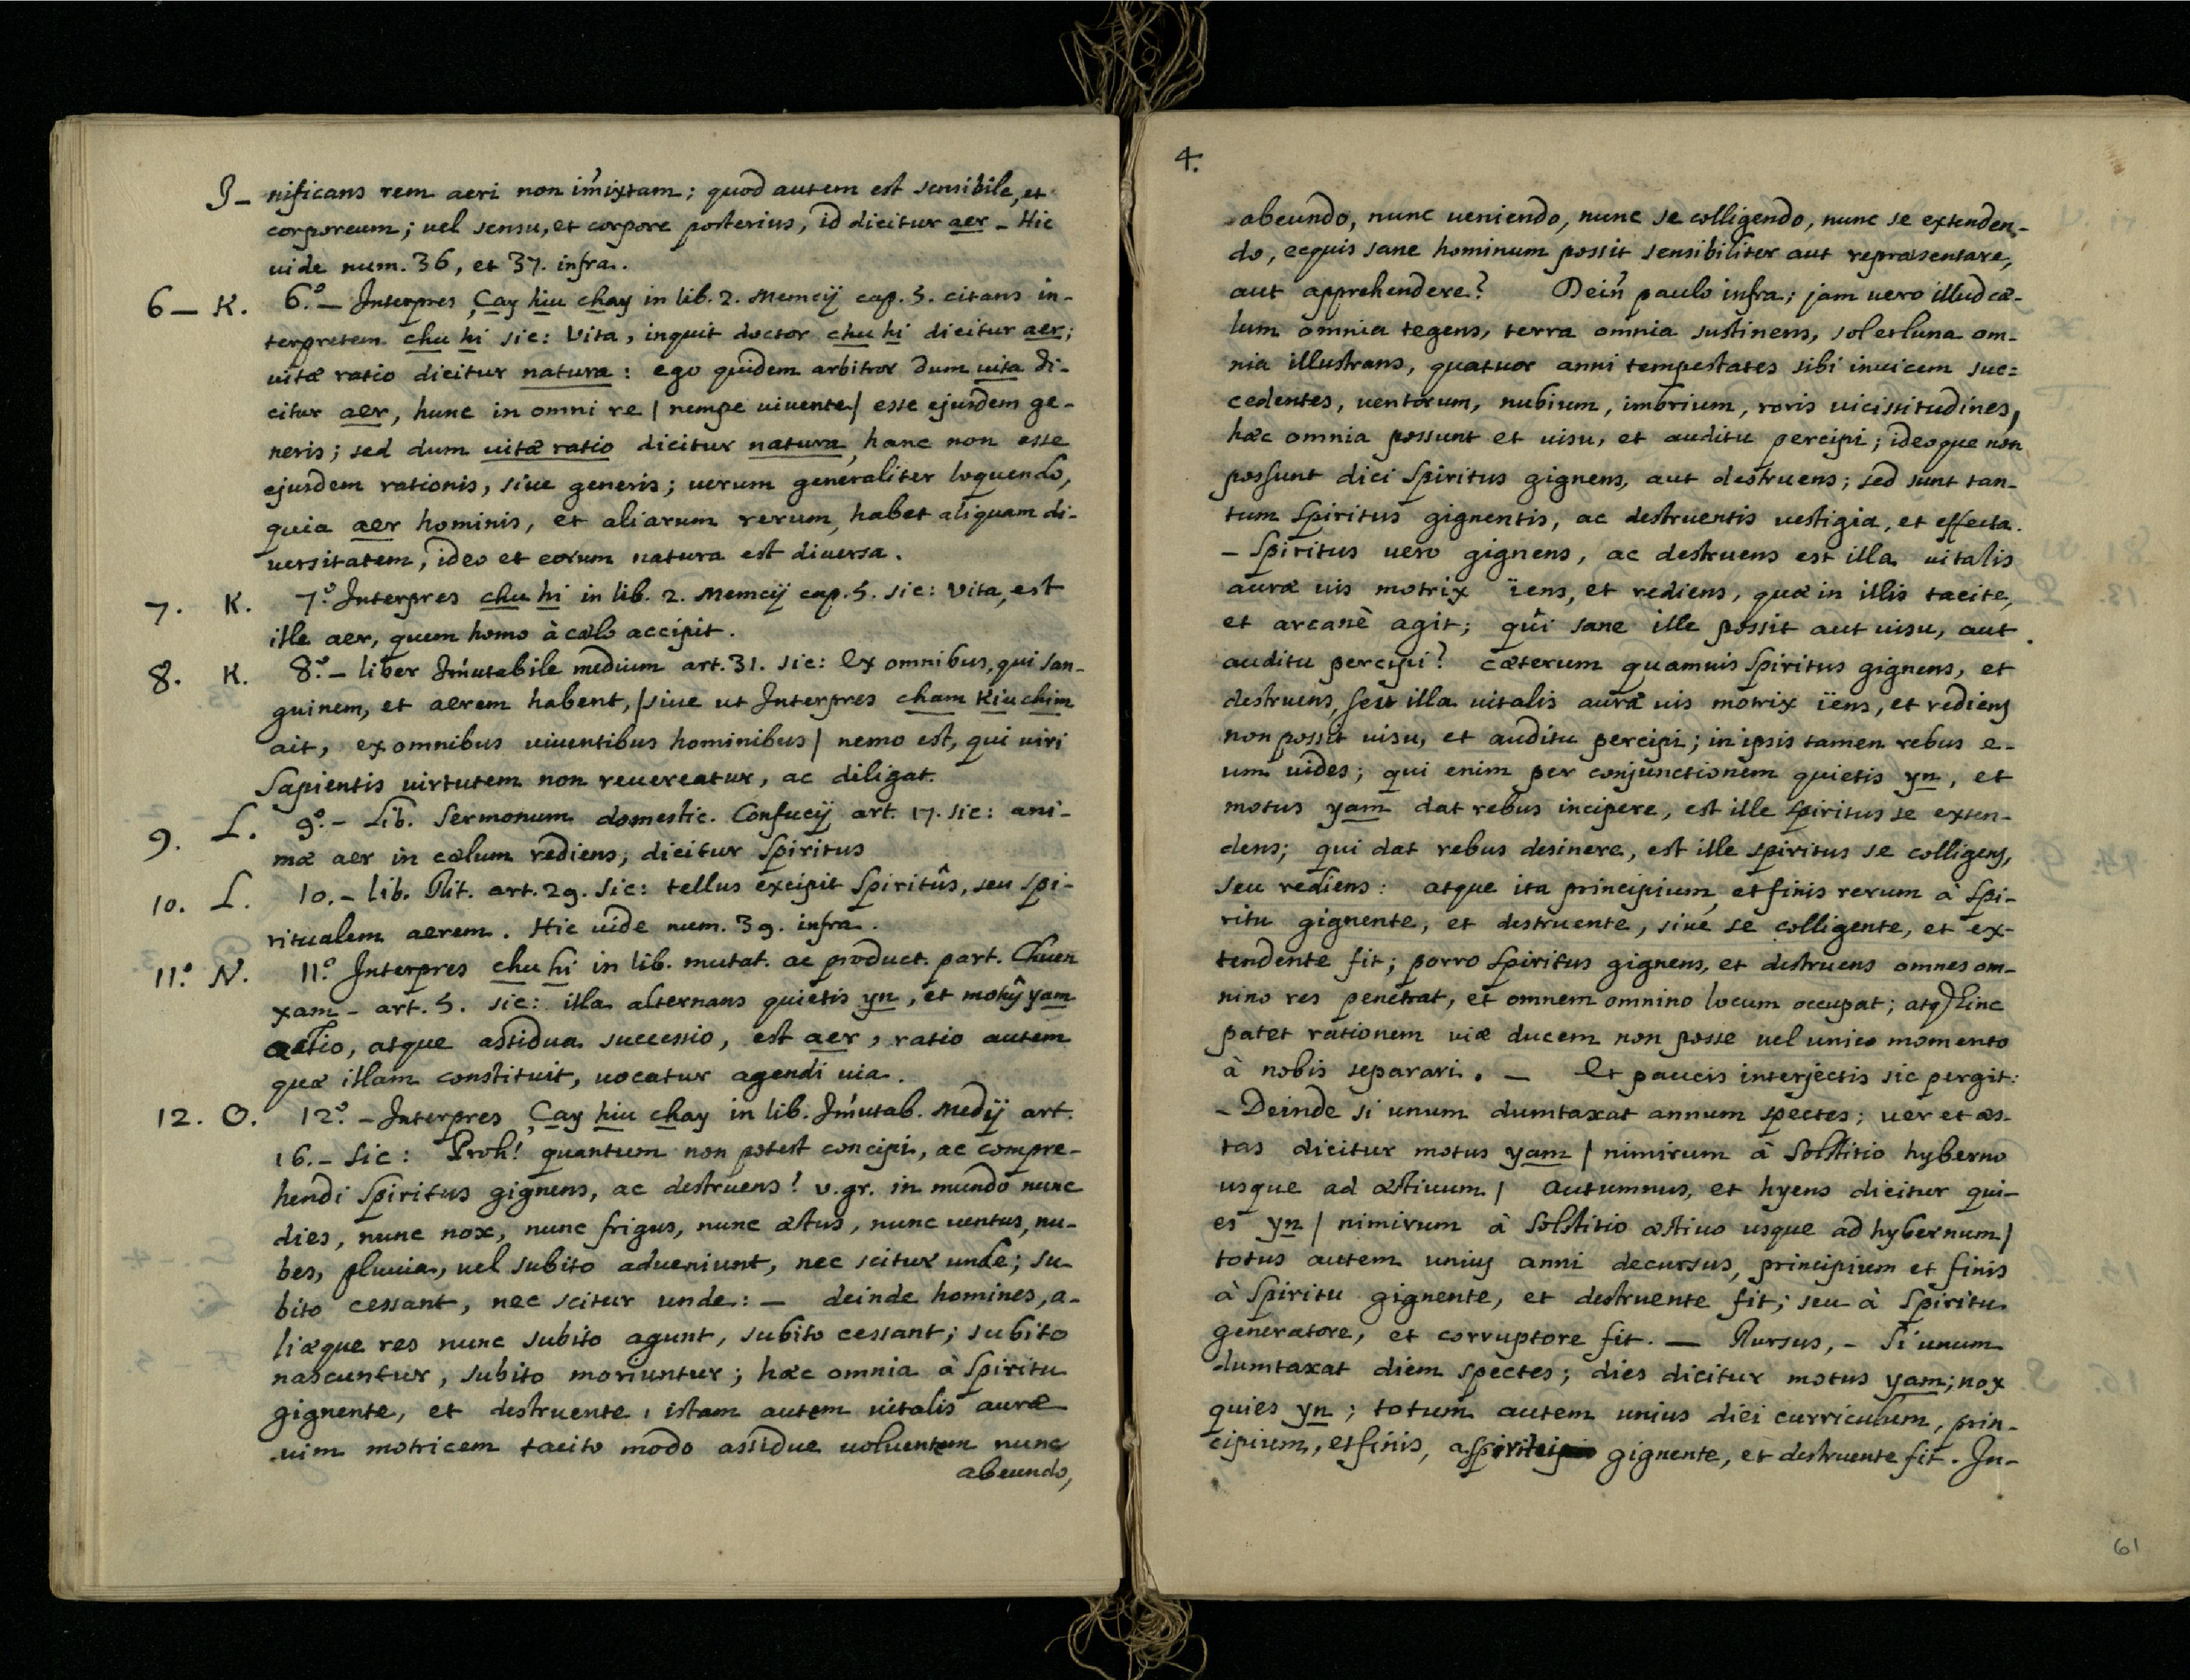 J– nificans rem aeri non im̃ixtam; quod autem est sensibile, et
corporeum; uel sensu, et corpore posterius, id dicitur aer – Hic
uide num. 36, et 37. infra.
6 – K. 6.º – Interpres Çay hiu chay in lib. 2. Memcij cap. 5. citans in-
terpretem chu hi sic: Vita, inquit doctor chu hi dicitur aer;
uitæ ratio dicitur natura: ego quidem arbitror dum uita di-
citur aer, hunc in omni re | nempe uiuente | esse ejusdem ge-
neris; sed dum uitæ ratio dicitur natura, hanc non esse
ejusdem rationis, siue generis; uerum generaliter loquendo,
quia aer hominis, et aliarum rerum, habet aliquam di-
uersitatem, ideo et eorum natura est diuersa.
7. K. 7.º Interpres chu hi in lib. 2. Memcij cap. 5. sic: Vita, est
ille aer, quem homo à cœlo accipit.
8. K. 8.º – liber Im̃utabile medium art. 31. sic: Ex omnibus, qui san-
guinem, et aerem habent, | siue ut Interpres cham Kiu chim
ait, ex omnibus uiuentibus hominibus | nemo est, qui uiri
Sapientis virtutem non reuereatur, ac diligat.
9. L. 9.º – Lib. Sermonum domestic. Confucij art. 17. sic: ani-
mæ aer in cælum rediens, dicitur Spiritus
10. L. 10. – lib. Rit. art. 29. sic: tellus excipit Spiritûs, seu spi-
ritualem aerem. Hic uide num. 39. infra.
11.º N. 11.º Interpres chu hi in lib. mutat. ac product. part. Chuen
xam – art. 5. sic: illa alternans quietis yn, et motûs yam
actio, atque assidua successio, est aer, ratio autem
quæ illam constituit, uocatur agendi uia.
12. O. 12.º – Interpres Çay hiu chay in lib. Im̃utab. Medij art.
16. – sic: Proh! quantum non potest concipi, ac compre-
hendi Spiritus gignens, ac destruens! v. gr. in mundo nunc
dies, nunc nox, nunc frigus, nunc æstus, nunc uentus, nu-
bes, pluuia, uel subito adueniunt, nec scitur unde; su-
bito cessant, nec scitur unde: – deinde homines, a-
liæque res nunc subito agunt, subito cessant; subito
nascuntur, subito moriuntur; hæc omnia à Spiritu
gignente, et destruente, istam autem uitalis auræ
uim motricem tacito modo assidue uoluentem nunc
abeundo,
4.
abeundo, nunc ueniendo, nunc se colligendo, nunc se extenden-
do, ecquis sane hominum possit sensibiliter aut repræsentare,
aut apprehendere? Dein̄ paulo infra; jam uero illud cæ-
lum omnia tegens, terra omnia sustinens, sol et luna om-
nia illustrans, quatuor anni tempestates sibi inuicem suc=
cedentes, uentorum, nubium, imbrium, roris uicissitudines,
hæc omnia possunt et uisu, et auditu percipi; ideoque non
possunt dici Spiritus gignens, aut destruens; sed sunt tan-
tum Spiritus gignentis, ac destruentis uestigia, et effecta.
– Spiritus uero gignens, ac destruens est illa uitalis
auræ uis motrix ïens, et rediens, quæ in illis tacite,
et arcanè agit; quî sane ille possit aut uisu, aut
auditu percipi? cæterum quamuis Spiritus gignens, et
destruens, seu illa uitalis auræ uis motrix ïens, et rediens
non possit uisu, et auditu percipi; in ipsis tamen rebus e-
um uides; qui enim per conjunctionem quietis yn, et
motus yam dat rebus incipere, est ille Spiritus se exten-
dens; qui dat rebus desinere, est ille spiritus se colligens,
seu rediens: atque ita principium, et finis rerum à Spi-
ritu gignente, et destruente, siue se colligente, et ex-
tendente fit; porro Spiritus gignens, et destruens omnes om-
nino res penetrat, et omnem omnino locum occupat; atq) hinc
patet rationem uiæ ducem non posse uel unico momento
à nobis separari. – Et paucis interjectis sic pergit:
– Deinde si unum dumtaxat annum spectes; uer et æs-
tas dicitur motus yam | nimirum à Solstitio hyberno
usque ad æstiuum | Autumnus, et hyens dicitur qui-
es yn | nimirum à Solstitio æstiuo usque ad hybernum |
totus autem unius anni decursus, principium et finis
à Spiritu gignente, et destruente fit; seu à Spiritu
generatore, et corruptore fit. – Rursus, – Si unum
dumtaxat diem spectes; dies dicitur motus yam; nox
quies yn; totum autem unius diei curriculum, prin-
cipium, et finis, a Spiritu gignente, et destruente fit. In-
61